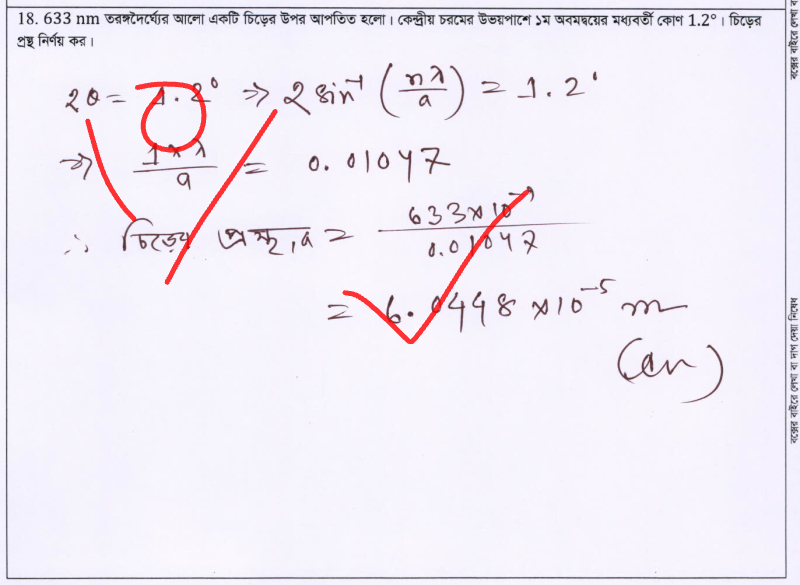 18. 633 nm তরঙ্গদৈর্ঘ্যের আলো একটি চিড়ের উপর আপতিত হলো। কেন্দ্রীয় চরমের উভয়পাশে ১ম অবমদ্বয়ের মধ্যবর্তী কোণ 1.2°। চিড়ের
প্রস্থ নির্ণয় কর।
2θ = 1.2° ⇒ 2 sin⁻¹ (nλ/a) = 1.2°
⇒ 1×λ/a = 0.01047
∴ চিড়ের প্রস্থ, a = 633×10⁻⁹/0.01047
= 6.0448 ×10⁻⁵ m
(an)
বক্সের বাইরে লেখা বা দাগ দেয়া নিষেধ